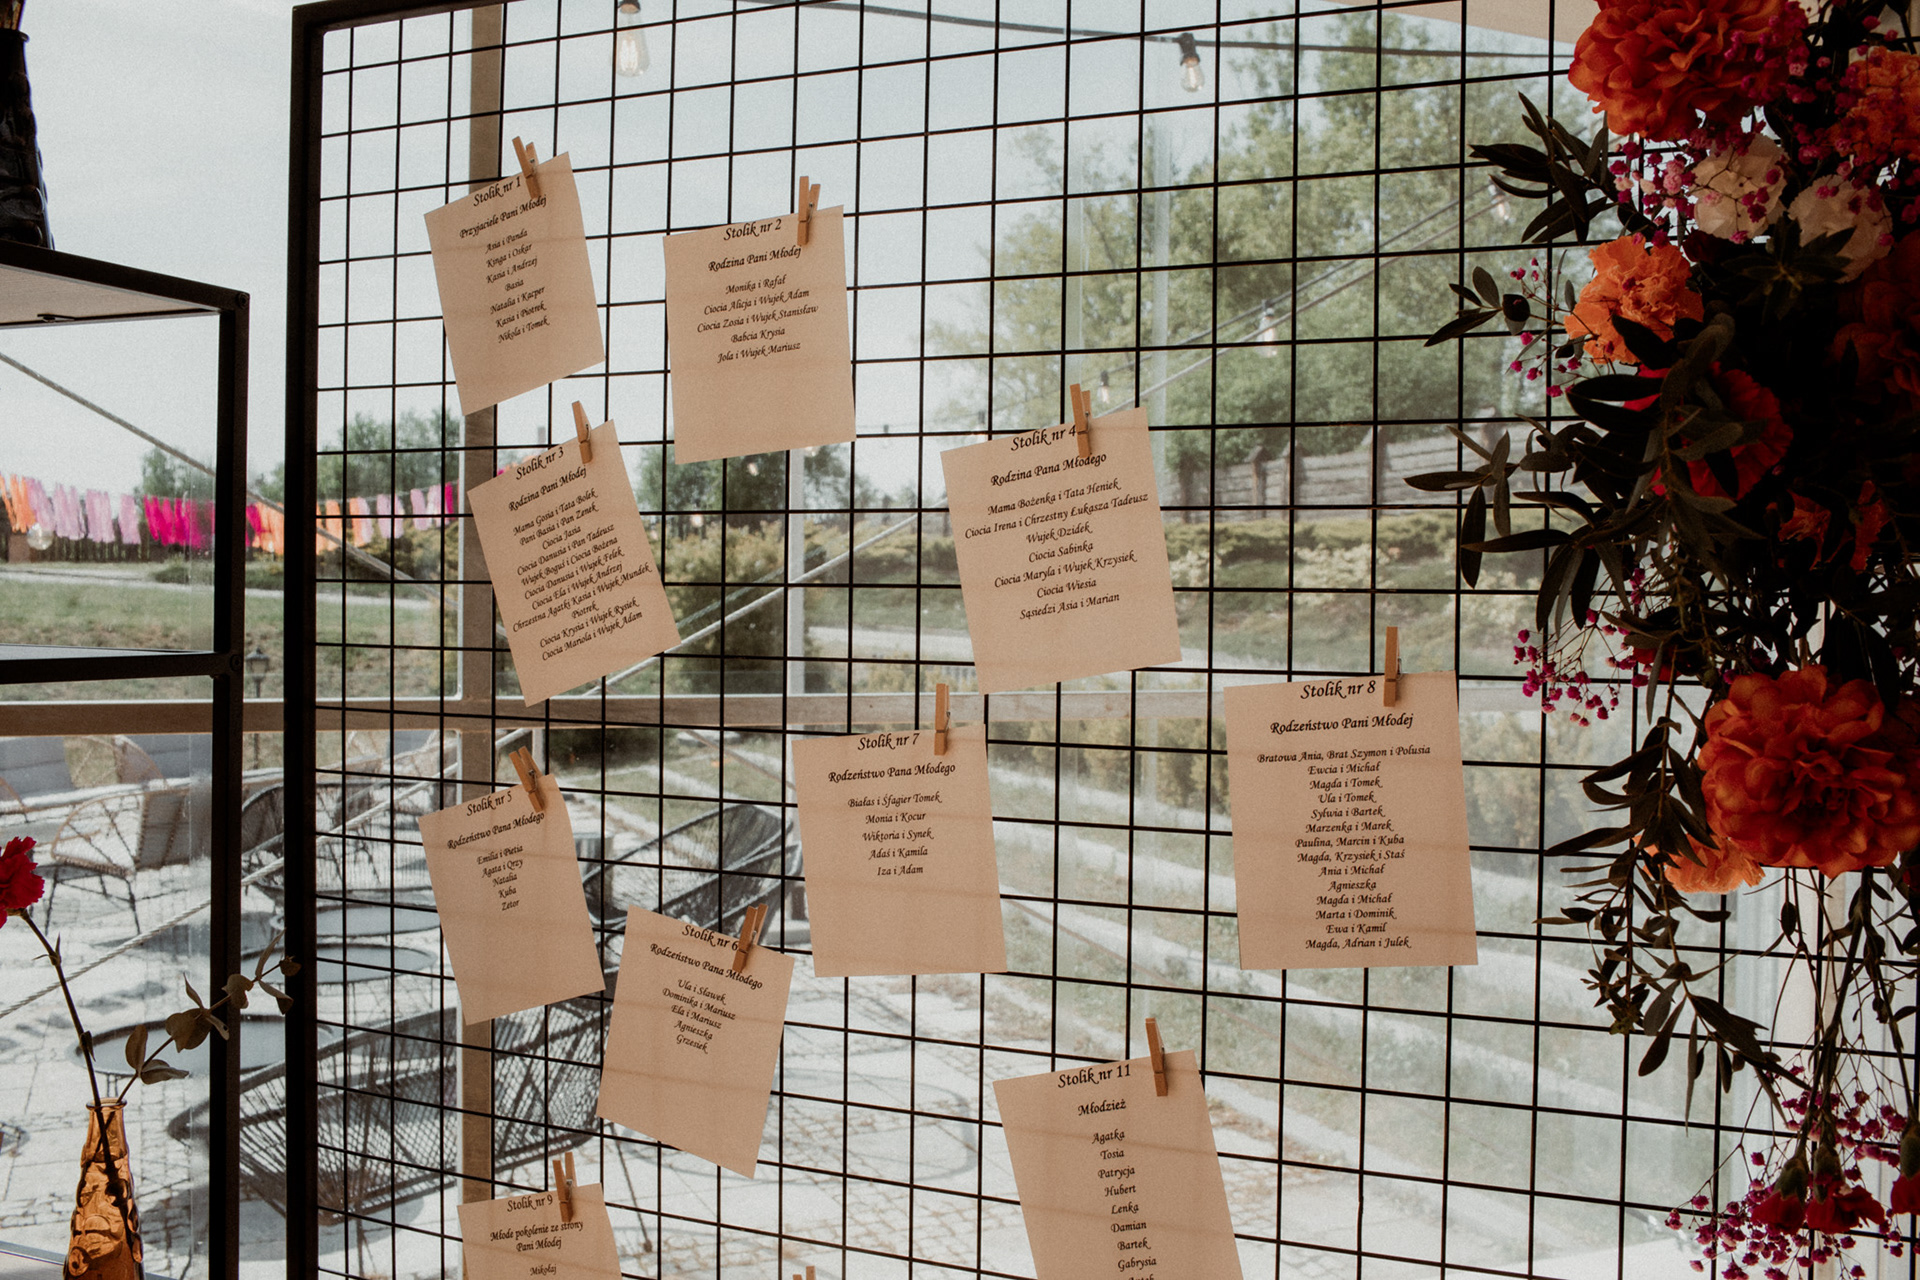 Stolik nr 1
Przyjaciele Pani Młodej
Asia i Panda
Kinga i Oskar
Kasia i Andrzej
Basia
Natalia i Kacper
Kasia i Piotrek
Nikola i Tomek
Stolik nr 2
Rodzina Pani Młodej
Monika i Rafał
Ciocia Alicja i Wujek Adam
Ciocia Zosia i Wujek Stanisław
Babcia Krysia
Jola i Wujek Mariusz
Stolik nr 3
Rodzina Pani Młodej
Mama Gosia i Tata Bolek
Pani Basia i Pan Zenek
Ciocia Jasia
Ciocia Danusia i Pan Tadeusz
Wujek Boguś i Ciocia Bożena
Ciocia Danusia i Wujek Felek
Ciocia Ela i Wujek Andrzej
Chrzestna Agatki Kasia i Wujek Mundek
Piotrek
Ciocia Krysia i Wujek Rysiek
Ciocia Mariola i Wujek Adam
Stolik nr 4
Rodzina Pana Młodego
Mama Bożenka i Tata Heniek
Ciocia Irena i Chrzestny Łukasza Tadeusz
Wujek Dzidek
Ciocia Sabinka
Ciocia Maryla i Wujek Krzysiek
Ciocia Wiesia
Sąsiedzi Asia i Marian
Stolik nr 5
Rodzeństwo Pana Młodego
Emilia i Pietia
Agata i Orzy
Natalia
Kuba
Zetor
Stolik nr 6
Rodzeństwo Pana Młodego
Ula i Sławek
Dominika i Mariusz
Ela i Mariusz
Agnieszka
Grzesiek
Stolik nr 7
Rodzeństwo Pana Młodego
Białas i Śfagier Tomek
Monia i Kocur
Wiktoria i Synek
Adaś i Kamila
Iza i Adam
Stolik nr 8
Rodzeństwo Pani Młodej
Bratowa Ania, Brat Szymon i Polusia
Ewcia i Michał
Magda i Tomek
Ula i Tomek
Sylwia i Bartek
Marzenka i Marek
Paulina, Marcin i Kuba
Magda, Krzysiek i Staś
Ania i Michał
Agnieszka
Magda i Michał
Marta i Dominik
Ewa i Kamil
Magda, Adrian i Julek
Stolik nr 9
Młode pokolenie ze strony
Pani Młodej
Mikołaj
Stolik nr 11
Młodzież
Agatka
Tosia
Patrycja
Hubert
Lenka
Damian
Bartek
Gabrysia